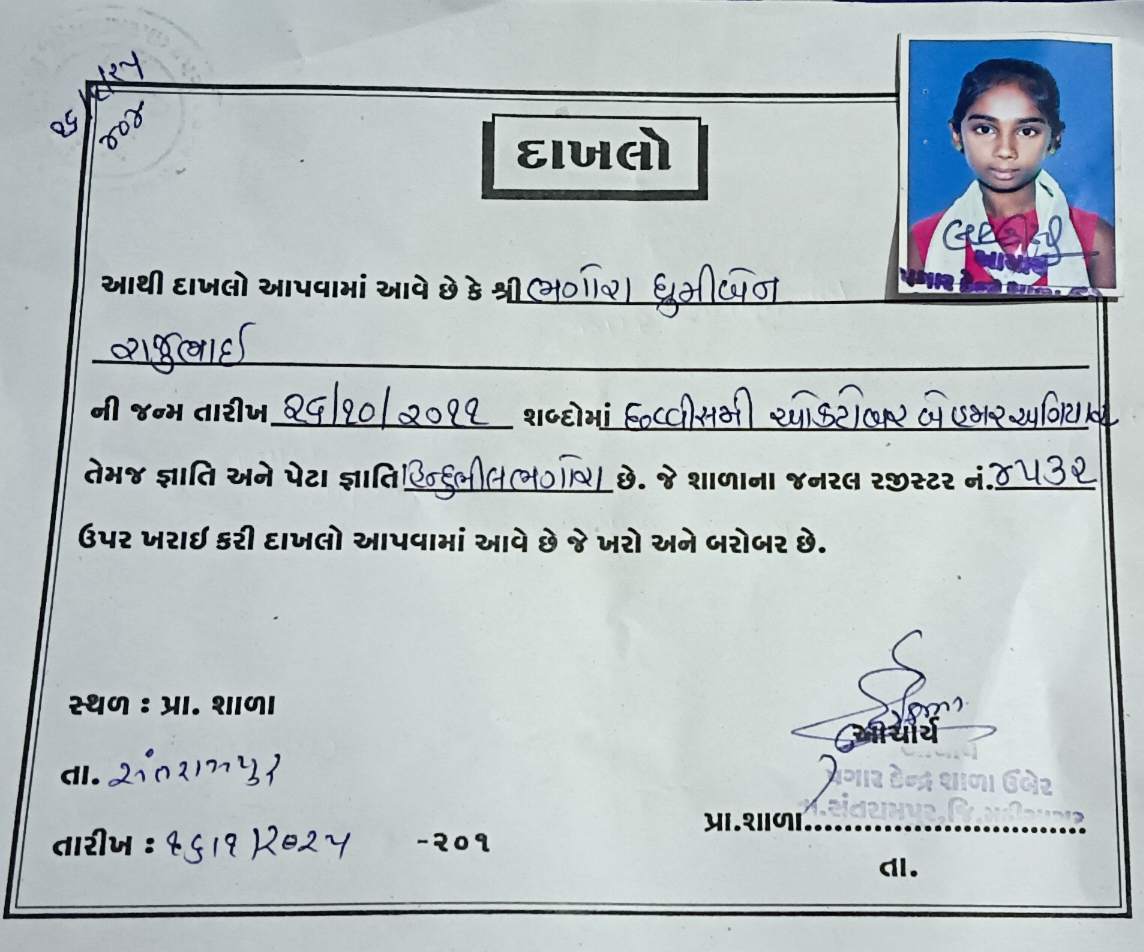 ૨૬/૧/૨૫
૨૦૪
દાખલો
આથી દાખલો આપવામાં આવે છે કે શ્રી ભગોરા ધ્રુમીબેન
રાજુભાઈ
ની જન્મ તારીખ ૨૬/૧૦/૨૦૧૧ શબ્દોમાં છવ્વીસમી ઓક્ટોબર બે હજાર અગિયાર
તેમજ જ્ઞાતિ અને પેટા જ્ઞાતિ હિન્દુભીલ ભગોરા છે. જે શાળાના જનરલ રજીસ્ટર નં. ૪૫૩૨
ઉપર ખરાઈ કરી દાખલો આપવામાં આવે છે જે ખરો અને બરોબર છે.
સ્થળ : પ્રા. શાળા
તા. સંતરામપુર
તારીખ : ૧૬/૧/૨૦૨૫ -૨૦૧
આચાર્ય
આચાર્ય
પગાર કેન્દ્ર શાળા ઉબેર
પ્રા.શાળા તા.સંતરામપુર,જિ.મહીસાગર
તા.
આચાર્ય
પગાર કેન્દ્ર શાળા